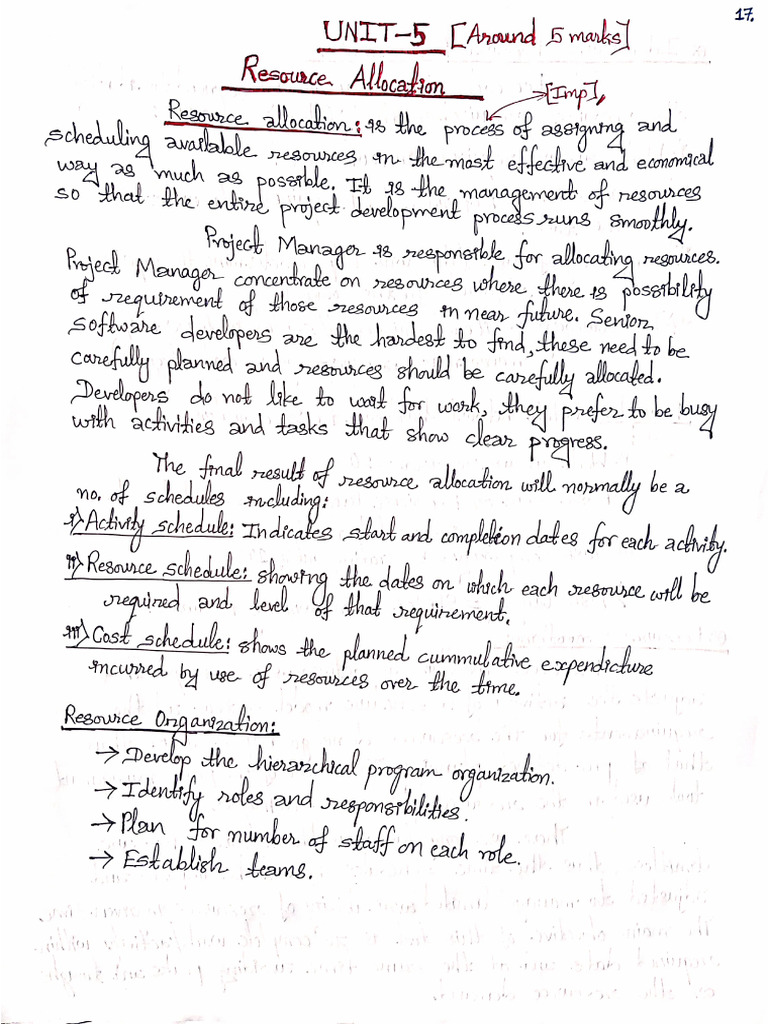 17.
UNIT-5 [Around 5 marks]
Resource Allocation
[Imp],
Resource allocation: is the process of assigning and
scheduling available resources in the most effective and economical
way as much as possible. It is the management of resources
so that the entire project development process runs smoothly.
Project Manager is responsible for allocating resources.
Project Manager concentrate on resources where there is possibility
of requirement of those resources in near future. Senior
software developers are the hardest to find, these need to be
carefully planned and resources should be carefully allocated.
Developers do not like to wait for work, they prefer to be busy
with activities and tasks that show clear progress.
The final result of resource allocation will normally be a
no. of schedules including:
i) Activity schedule: Indicates start and completion dates for each activity.
ii) Resource schedule: showing the dates on which each resource will be
required and level of that requirement.
iii) Cost schedule: shows the planned cummulative expendicture
incurred by use of resources over the time.
Resource Organization:
→ Develop the hierarchical program organization.
→ Identify roles and responsibilities.
→ Plan for number of staff on each role.
→ Establish teams.